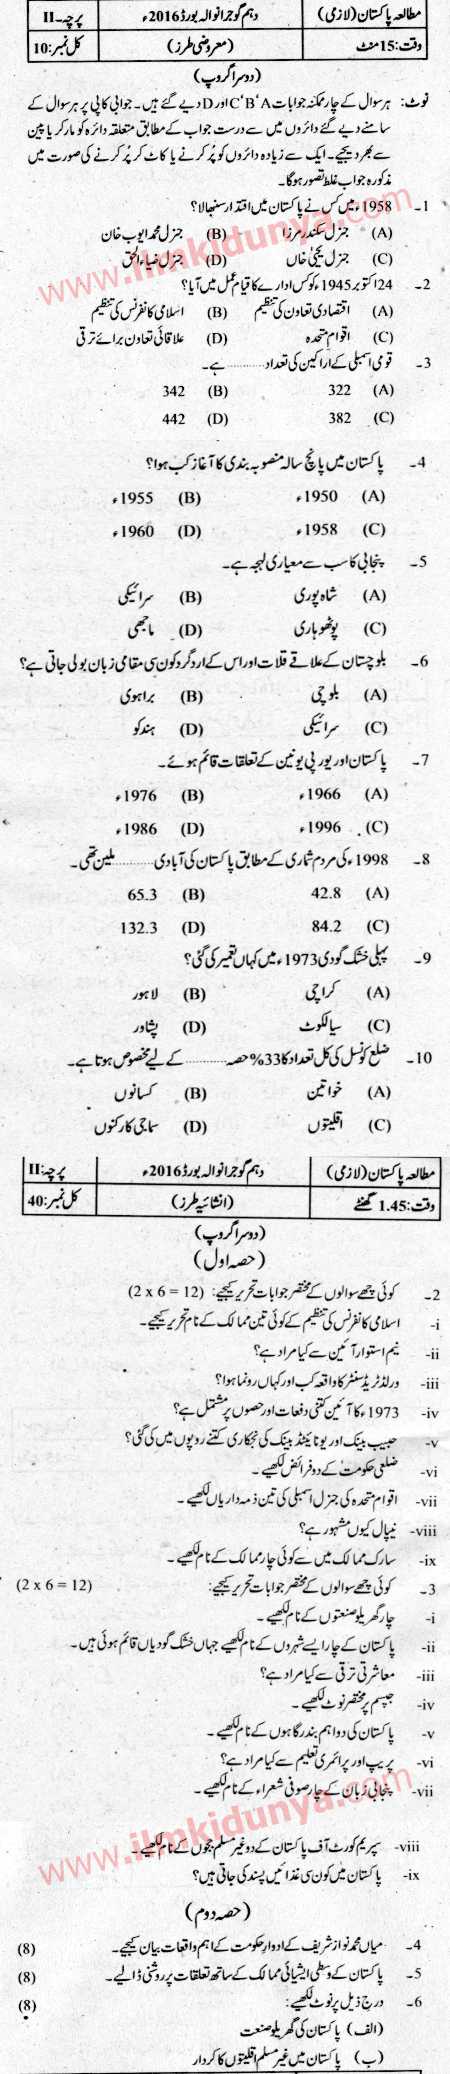 مطالعہ پاکستان (لازمی) دہم گوجرانوالہ بورڈ 2016ء پرچہ-II
وقت: 15 منٹ (معروضی طرز) کل نمبر: 10
(دوسرا گروپ)
نوٹ: ہر سوال کے چار ممکنہ جوابات A'B'C اور D دیے گئے ہیں۔ جوابی کاپی پر ہر سوال کے
سامنے دیے گئے دائروں میں سے درست جواب کے مطابق متعلقہ دائرہ کو مارکر یا پین
سے بھر دیجیے۔ ایک سے زیادہ دائروں کو پُر کرنے یا کاٹ کر پُر کرنے کی صورت میں
مذکورہ جواب غلط تصور ہوگا۔
1- 1958ء میں کس نے پاکستان میں اقتدار سنبھالا؟
(A) جنرل سکندر مرزا (B) جنرل محمد ایوب خان
(C) جنرل یحییٰ خاں (D) جنرل ضیاء الحق
2- 24 اکتوبر 1945ء کو کس ادارے کا قیام عمل میں آیا؟
(A) اقتصادی تعاون کی تنظیم (B) اسلامی کانفرنس کی تنظیم
(C) اقوام متحدہ (D) علاقائی تعاون برائے ترقی
3- قومی اسمبلی کے اراکین کی تعداد ............ ہے۔
(A) 322 (B) 342
(C) 382 (D) 442
4- پاکستان میں پانچ سالہ منصوبہ بندی کا آغاز کب ہوا؟
(A) 1950ء (B) 1955ء
(C) 1958ء (D) 1960ء
5- پنجابی کا سب سے معیاری لہجہ ہے۔
(A) شاہ پوری (B) سرائیکی
(C) پوٹھوہاری (D) ماجھی
6- بلوچستان کے علاقے قلات اور اس کے اردگرد کون سی مقامی زبان بولی جاتی ہے؟
(A) بلوچی (B) براہوی
(C) سرائیکی (D) ہندکو
7- پاکستان اور یورپی یونین کے تعلقات قائم ہوئے۔
(A) 1966ء (B) 1976ء
(C) 1996ء (D) 1986ء
8- 1998ء کی مردم شماری کے مطابق پاکستان کی آبادی ............ ملین تھی۔
(A) 42.8 (B) 65.3
(C) 84.2 (D) 132.3
9- پہلی خشک گودی 1973ء میں کہاں تعمیر کی گئی؟
(A) کراچی (B) لاہور
(C) سیالکوٹ (D) پشاور
10- ضلع کونسل کی کل تعداد کا 33% حصہ ............ کے لیے مخصوص ہوتا ہے۔
(A) خواتین (B) کسانوں
(C) اقلیتوں (D) سماجی کارکنوں
مطالعہ پاکستان (لازمی) دہم گوجرانوالہ بورڈ 2016ء پرچہ: II
وقت: 1.45 گھنٹے (انشائیہ طرز) کل نمبر: 40
(دوسرا گروپ)
(حصہ اول)
2- کوئی چھے سوالوں کے مختصر جوابات تحریر کیجیے: (2 x 6 = 12)
i- اسلامی کانفرنس کی تنظیم کے کوئی تین ممالک کے نام تحریر کیجیے۔
ii- نیم استوار آئین سے کیا مراد ہے؟
iii- ورلڈ ٹریڈ سنٹر کا واقعہ کب اور کہاں رونما ہوا؟
iv- 1973ء کا آئین کتنی دفعات اور حصوں پر مشتمل ہے؟
v- حبیب بینک اور یونائیٹڈ بینک کی نجکاری کتنے روپوں میں کی گئی؟
vi- ضلعی حکومت کے دو فرائض لکھیے۔
vii- اقوام متحدہ کی جنرل اسمبلی کی تین ذمہ داریاں لکھیے۔
viii- نیپال کیوں مشہور ہے؟
ix- سارک ممالک میں سے کوئی چار ممالک کے نام لکھیے۔
3- کوئی چھے سوالوں کے مختصر جوابات تحریر کیجیے: (2 x 6 = 12)
i- چار گھریلو صنعتوں کے نام لکھیے۔
ii- پاکستان کے چار ایسے شہروں کے نام لکھیے جہاں خشک گودیاں قائم ہوئی ہیں۔
iii- معاشرتی ترقی سے کیا مراد ہے؟
iv- جپسم پر مختصر نوٹ لکھیے۔
v- پاکستان کی دو اہم بندرگاہوں کے نام لکھیے۔
vi- پریپ اور پرائمری تعلیم سے کیا مراد ہے؟
vii- پنجابی زبان کے چار صوفی شعراء کے نام لکھیے۔
viii- سپریم کورٹ آف پاکستان کے دو غیر مسلم ججوں کے نام لکھیے۔
ix- پاکستان میں کون سی غذائیں پسند کی جاتی ہیں؟
(حصہ دوم)
4- میاں محمد نواز شریف کے ادوار حکومت کے اہم واقعات بیان کیجیے۔ (8)
5- پاکستان کے وسطی ایشیائی ممالک کے ساتھ تعلقات پر روشنی ڈالیے۔ (8)
6- درج ذیل پر نوٹ لکھیے: (8)
(الف) پاکستان کی گھریلو صنعت
(ب) پاکستان میں غیر مسلم اقلیتوں کا کردار
www.ilmkidunya.com
www.ilmkidunya.com